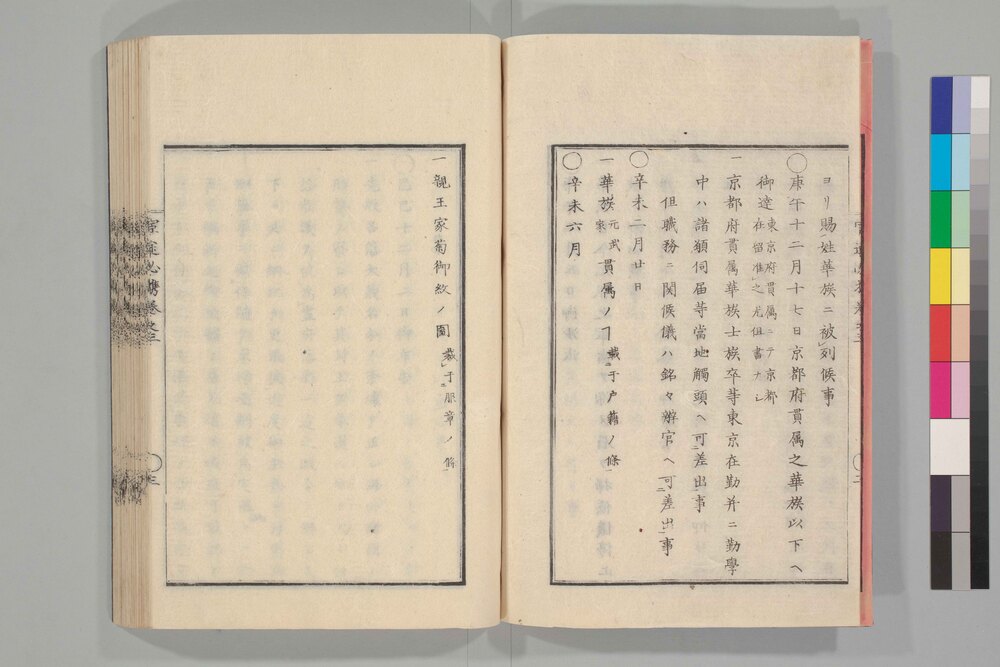 ヨリ賜姓華族ニ被列候事
○庚午十二月十七日京都府貫属之華族以下ヘ
御達東京府貫属ニテ京都
在留准之尤但書ナシ
一京都府貫属華族士族卒等東京在勤并ニ勤學
中ハ諸願伺届等當地觸頭ヘ可差出事
但職務ニ関候儀ハ銘々辨官ヘ可差出事
○辛未二月廿日
一華族元武家貫属ノヿ載于戸籍ノ條
○辛未六月
一親王家菊御紋ノ圖載于服章ノ條